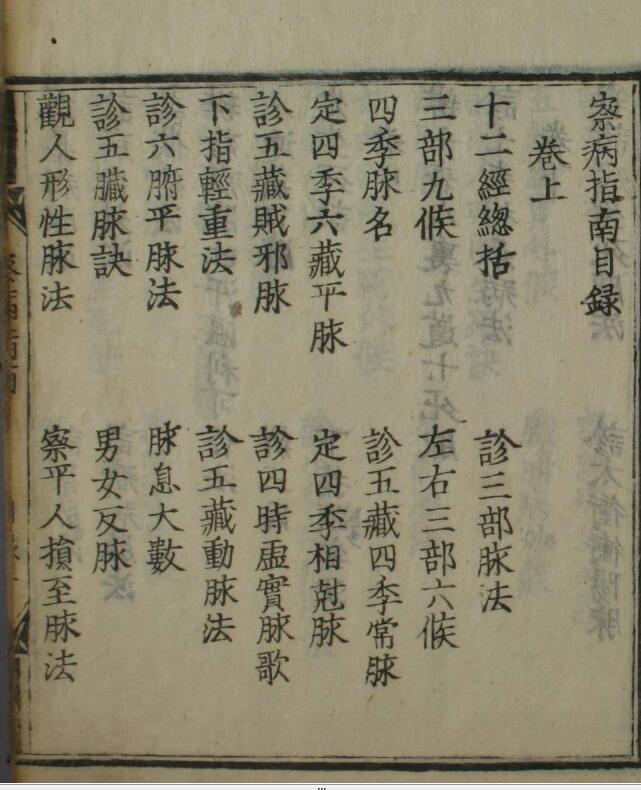 察病指南目録
卷上
十二經緫括
診三部脉法
三部九候
左右三部六候
四季脉名
診五藏四季常脉
定四季六藏平脉
定四季相尅脉
診五藏賊邪脉
診四時虛實脉歌
下指輕重法
診五藏動脉法
診六腑平脉法
脉息大數
診五臟脉訣
男女反脉
觀人形性脉法
察平人損至脉法